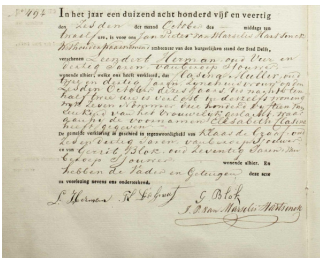 No 494
In het jaar een duizend acht honderd vijf en veertig
den Zesden der maand October des middags ten
Twaalf ure, is voor ons Jan Pieter van Marselis Hartsinck
Ambtenaar van den burgerlijken stand der Stad Delft,
verschenen Leendert Herman oud Vier en
dertig Jaren van beroep Sjouwer
wonende alhier, welke ons heeft verklaard, dat
en dertig Jaren
Zesden October dezes Jaars, des nachts ten
half twee ure is verlost in derzelver woning
van het Vrouwelijk geslacht, waar
aan de voornamen Elisabeth Maria
heeft gegeven
De gemelde verklaring is geschied in tegenwoordigheid van Klaas de Graaf, oud
Jaren van beroep Sjouwer
en Gerrit Blok oud Zeventig Jaren van
beroep Sjouwer
wonende alhier. En
hebben de Vader en Getuigen deze acte
na voorlezing nevens ons onderteekend.
L. Herman K de Graaf G Blok
J. P. van Marselis Hartsinck